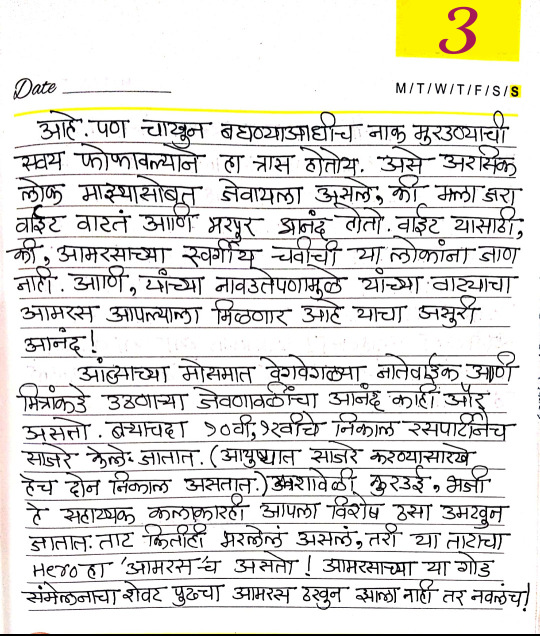 3
Date
M/T/W/T/F/S/S
आहे. पण चाखून बघण्याआधीच नाक मुरडण्याची
सवय फोफावल्याने हा त्रास होतोय. असे अरसिक
लोक माझ्यासोबत जेवायला असले, की मला जरा
वाईट वाटतं आणि भरपूर आनंद होतो. वाईट यासाठी,
की, आमरसाच्या स्वर्गीय चवीची या लोकांना जाण
नाही. आणि, यांच्या नावडतेपणामुळे यांच्या वाट्याचा
आमरस आपल्याला मिळणार आहे याचा असुरी
आनंद!
आंब्याच्या मोसमात वेगवेगळ्या नातेवाईक आणि
मित्रांकडे उठणाऱ्या जेवणावळींचा आनंद काही और
असतो. बऱ्याचदा १०वी, १२वीचे निकाल रसपार्टीनेच
साजरे केले जातात. (आयुष्यात साजरे करण्यासारखे
हेच दोन निकाल असतात.) अशावेळी कुरडई, भजी
हे सहाय्यक कलाकारही आपला विशेष ठसा उमटवून
जातात. ताट कितीही भरलेलं असलं, तरी या ताटाचा
Hero हा 'आमरस'च असतो! आमरसाच्या या गोड
संमेलनाचा शेवट पुढचा आमरस ठरवून झाला नाही तर नवलंच!